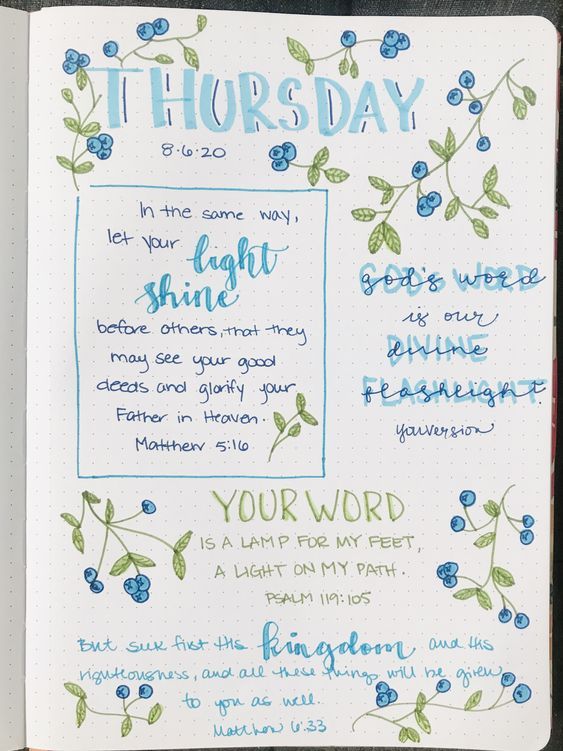 THURSDAY
8·6·20
In the same way,
let your light
shine
before others, that they
may see your good
deeds and glorify your
Father in Heaven.
Matthew 5:16
God's Word
is our
divine
flashlight
youversion
YOUR WORD
IS A LAMP FOR MY FEET,
A LIGHT ON MY PATH.
PSALM 119:105
But seek first His kingdom and His
righteousness, and all these things will be given
to you as well.
Matthew 6:33